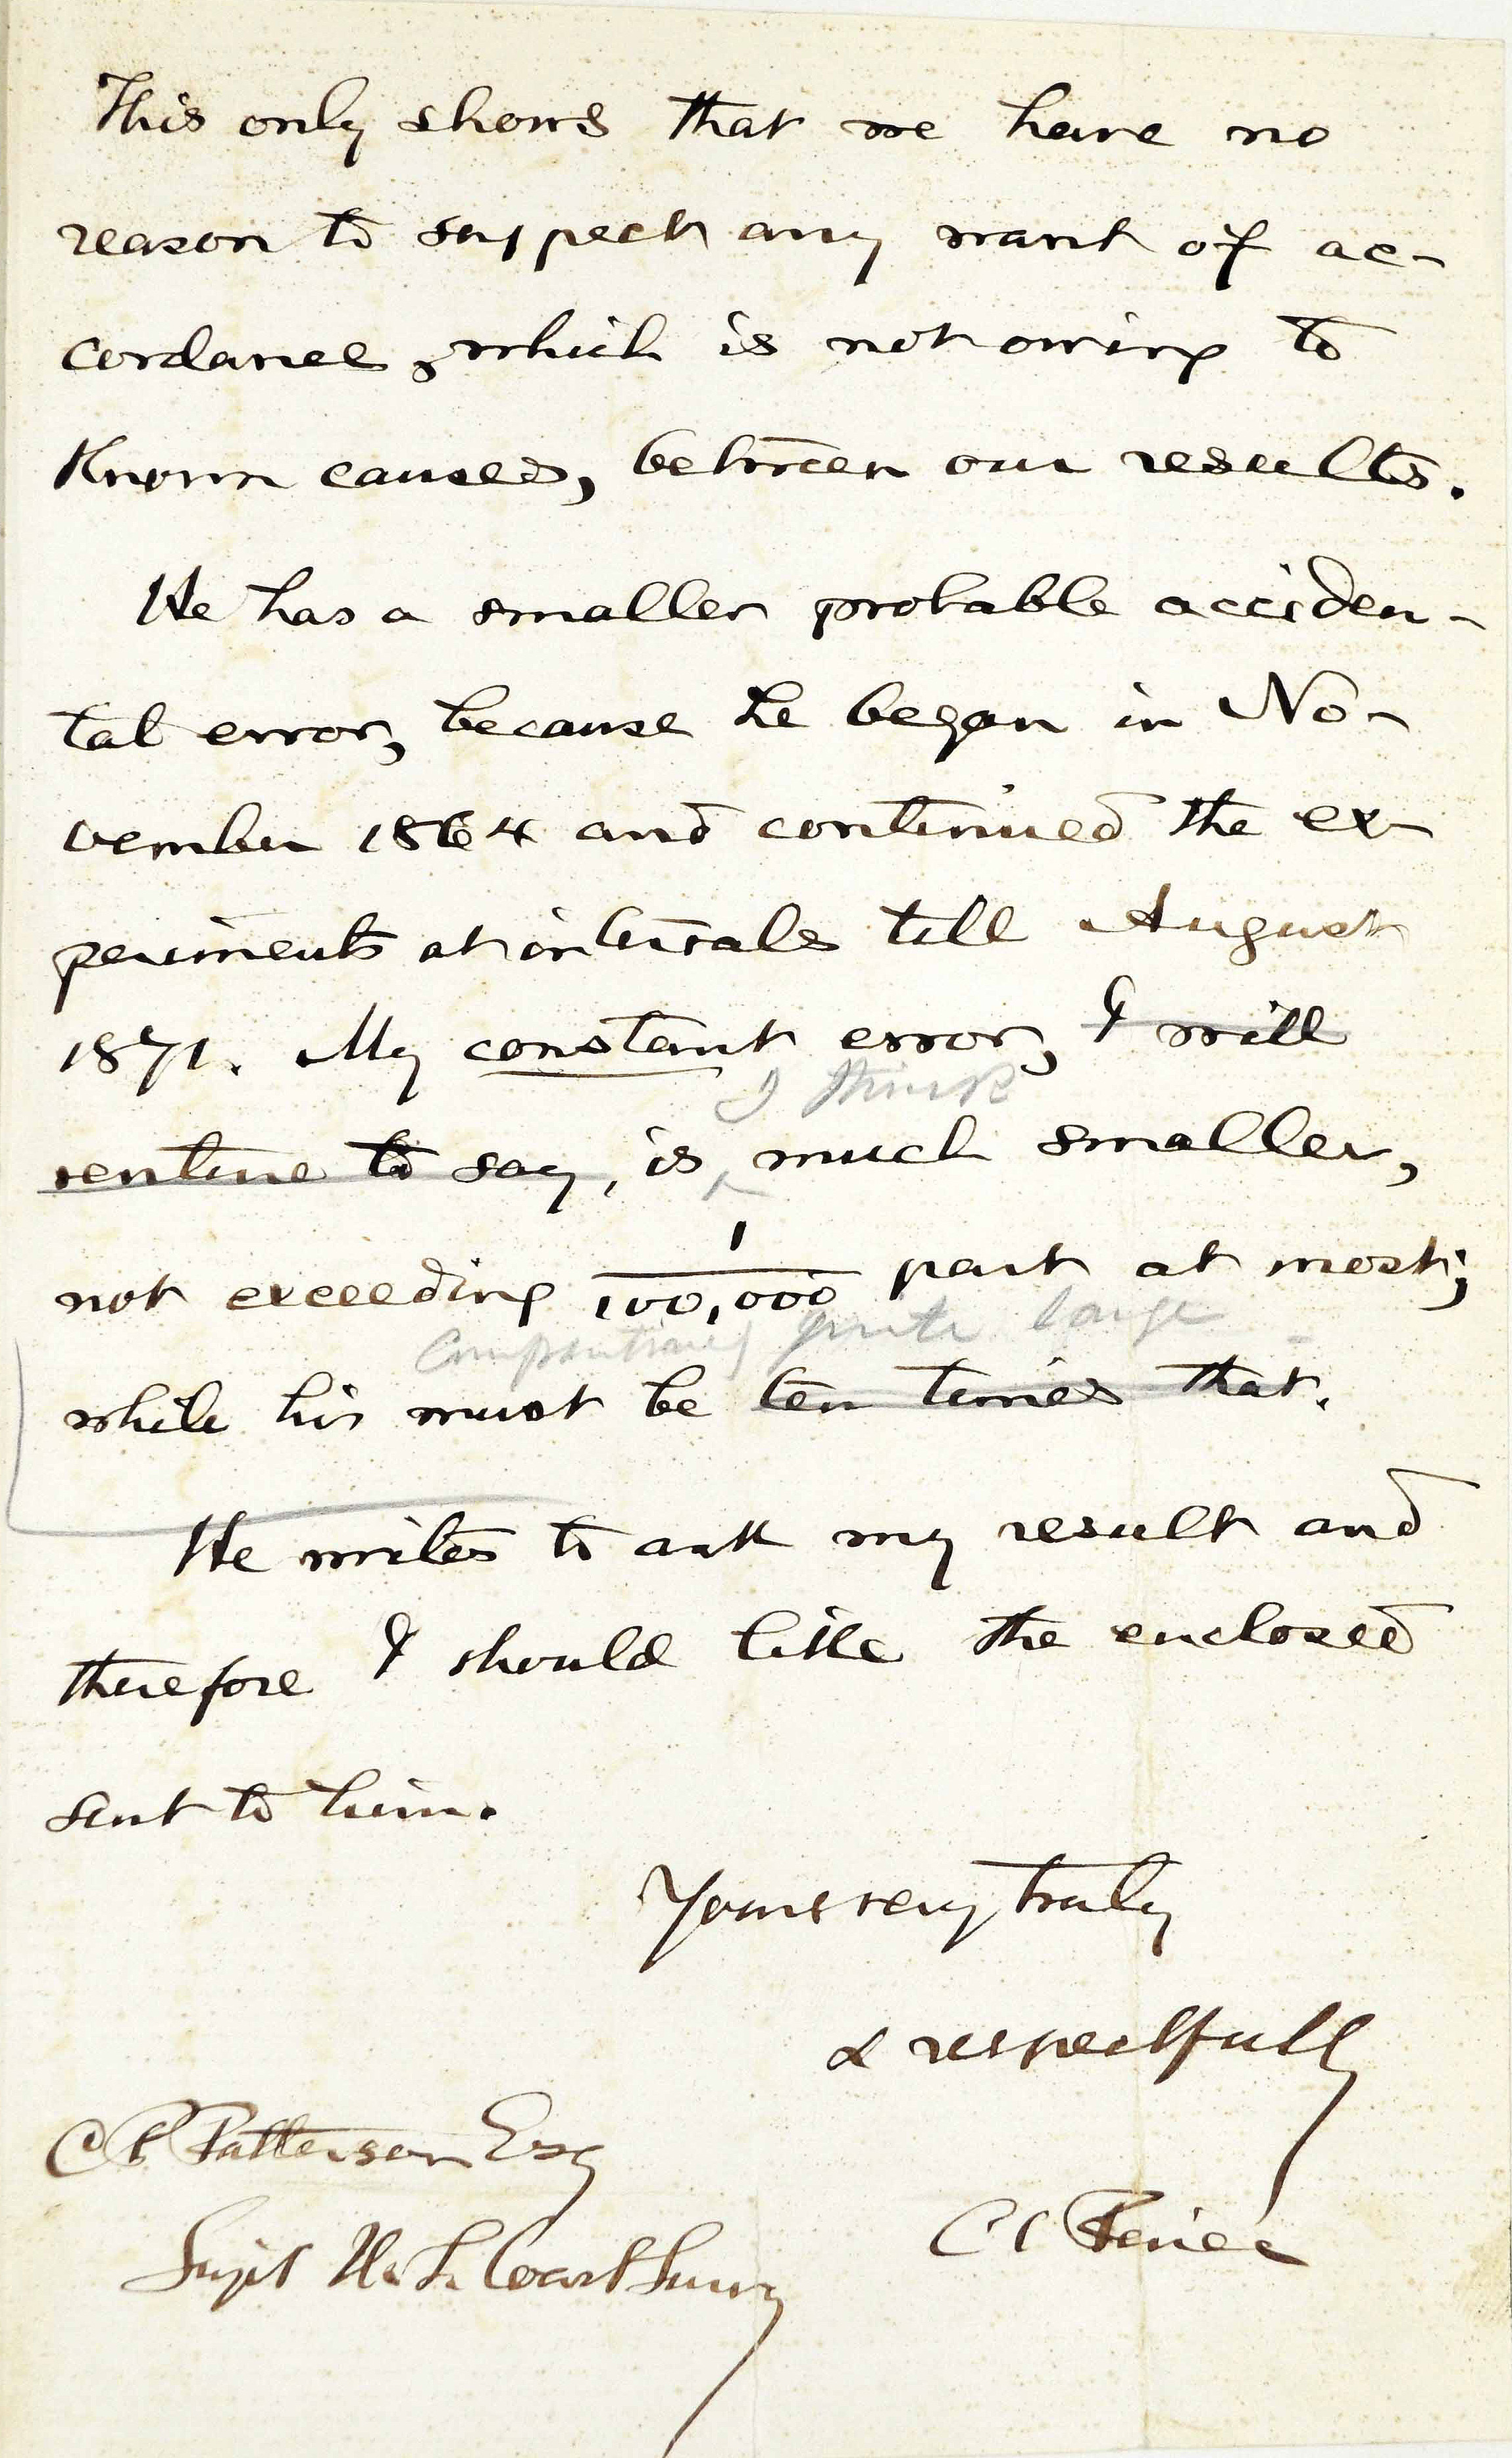 This only shows that we have no
reason to suspect any want of ac-
cordance, which is not owing to
Known causes, between our results.
He has a smaller probable acciden-
tal error, because he began in No-
vember 1864 and continued the ex-
periments at intervals till August
1871. My constant error, I will
I think
venture to say, is much smaller,
not exceeding 1/100,000 part at most;
Comparatively quite large
while his must be ten times that.
He writes to ask my result and
therefore I should like the enclosed
sent to him.
Yours very truly
& respectfully
C P Patterson Esq
C S Peirce
Supt U. S. Coast Survey